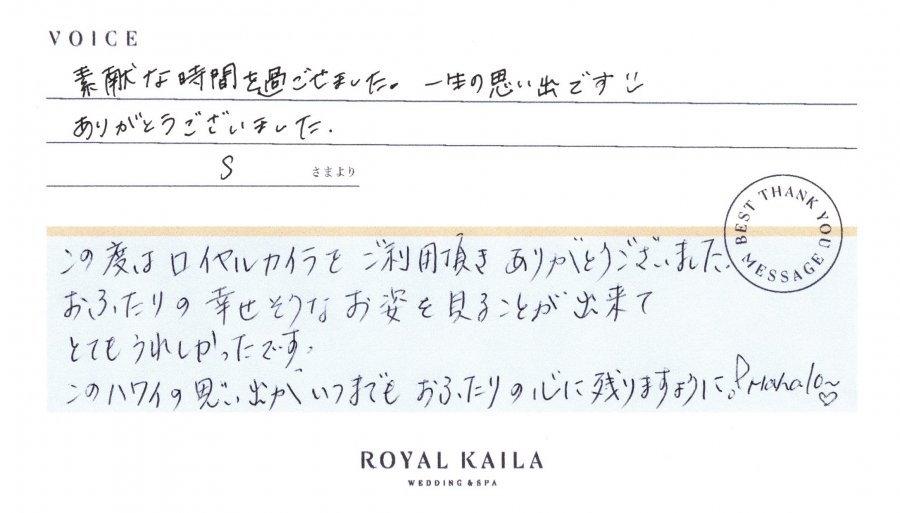 VOICE
素敵な時間を過ごせました。一生の思い出です
ありがとうございました.
S さまより
BEST THANK YOU MESSAGE
この度はロイヤルカイラをご利用頂きありがとうございました.
おふたりの幸せそうなお姿を見ることが出来て
とてもうれしかったです。
このハワイの思い出がいつまでもおふたりの心に残りますように! Mahalo~♡
ROYAL KAILA
WEDDING & SPA